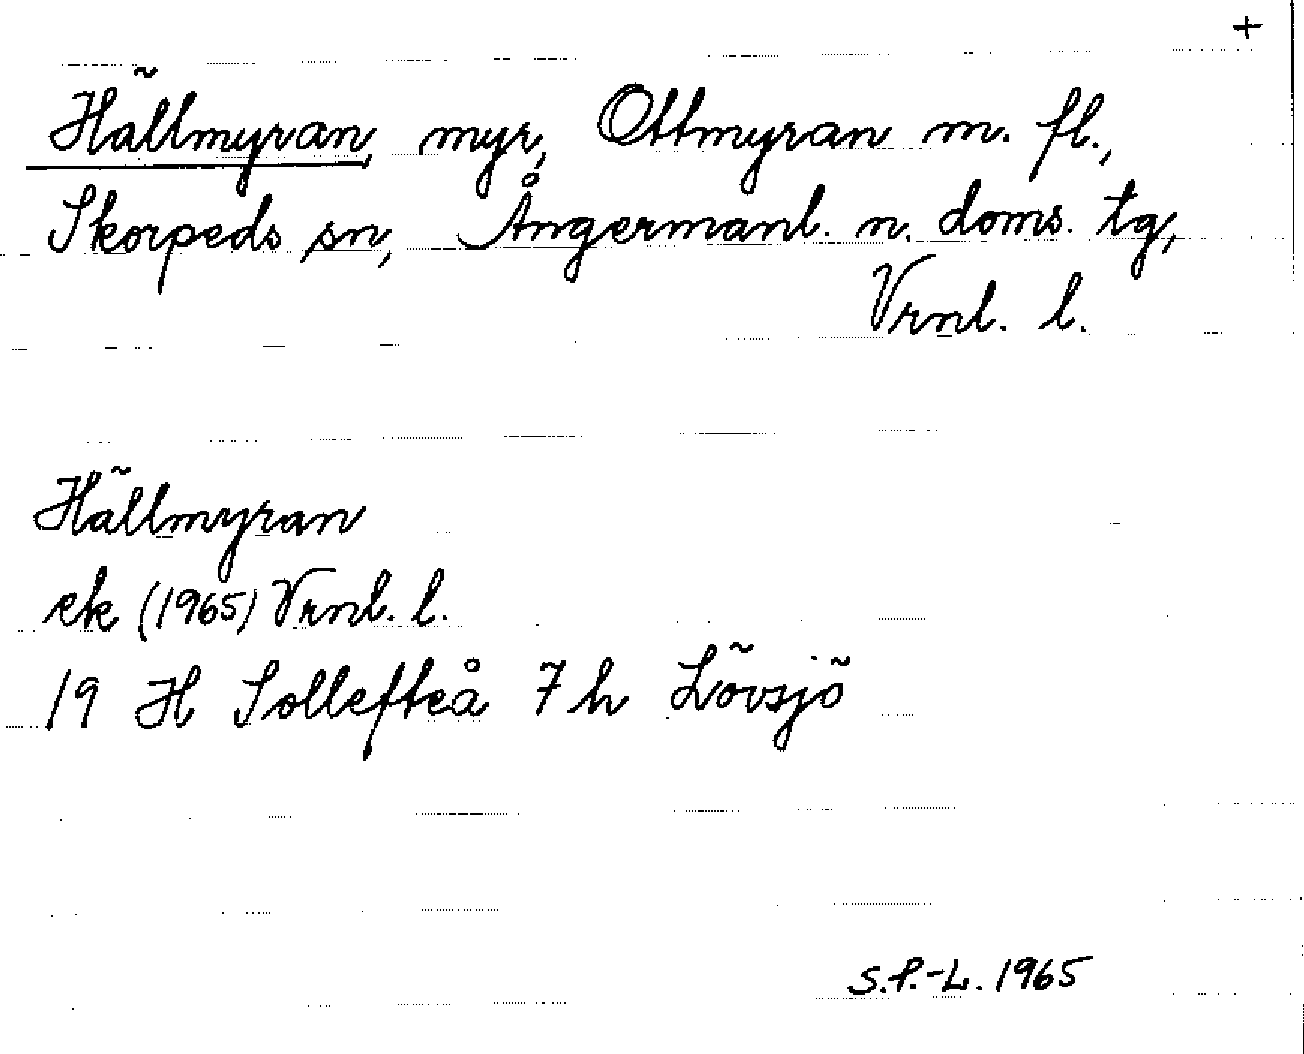 +
Hällmyran, myr, Ottmyran m. fl.,
Skorpeds sn, Ångermanl. n. doms. tg,
Vrnl. l.
Hällmyran
ek (1965) Vrnl. l.
19 H Sollefteå 7 h Lövsjö
S.P.-L. 1965